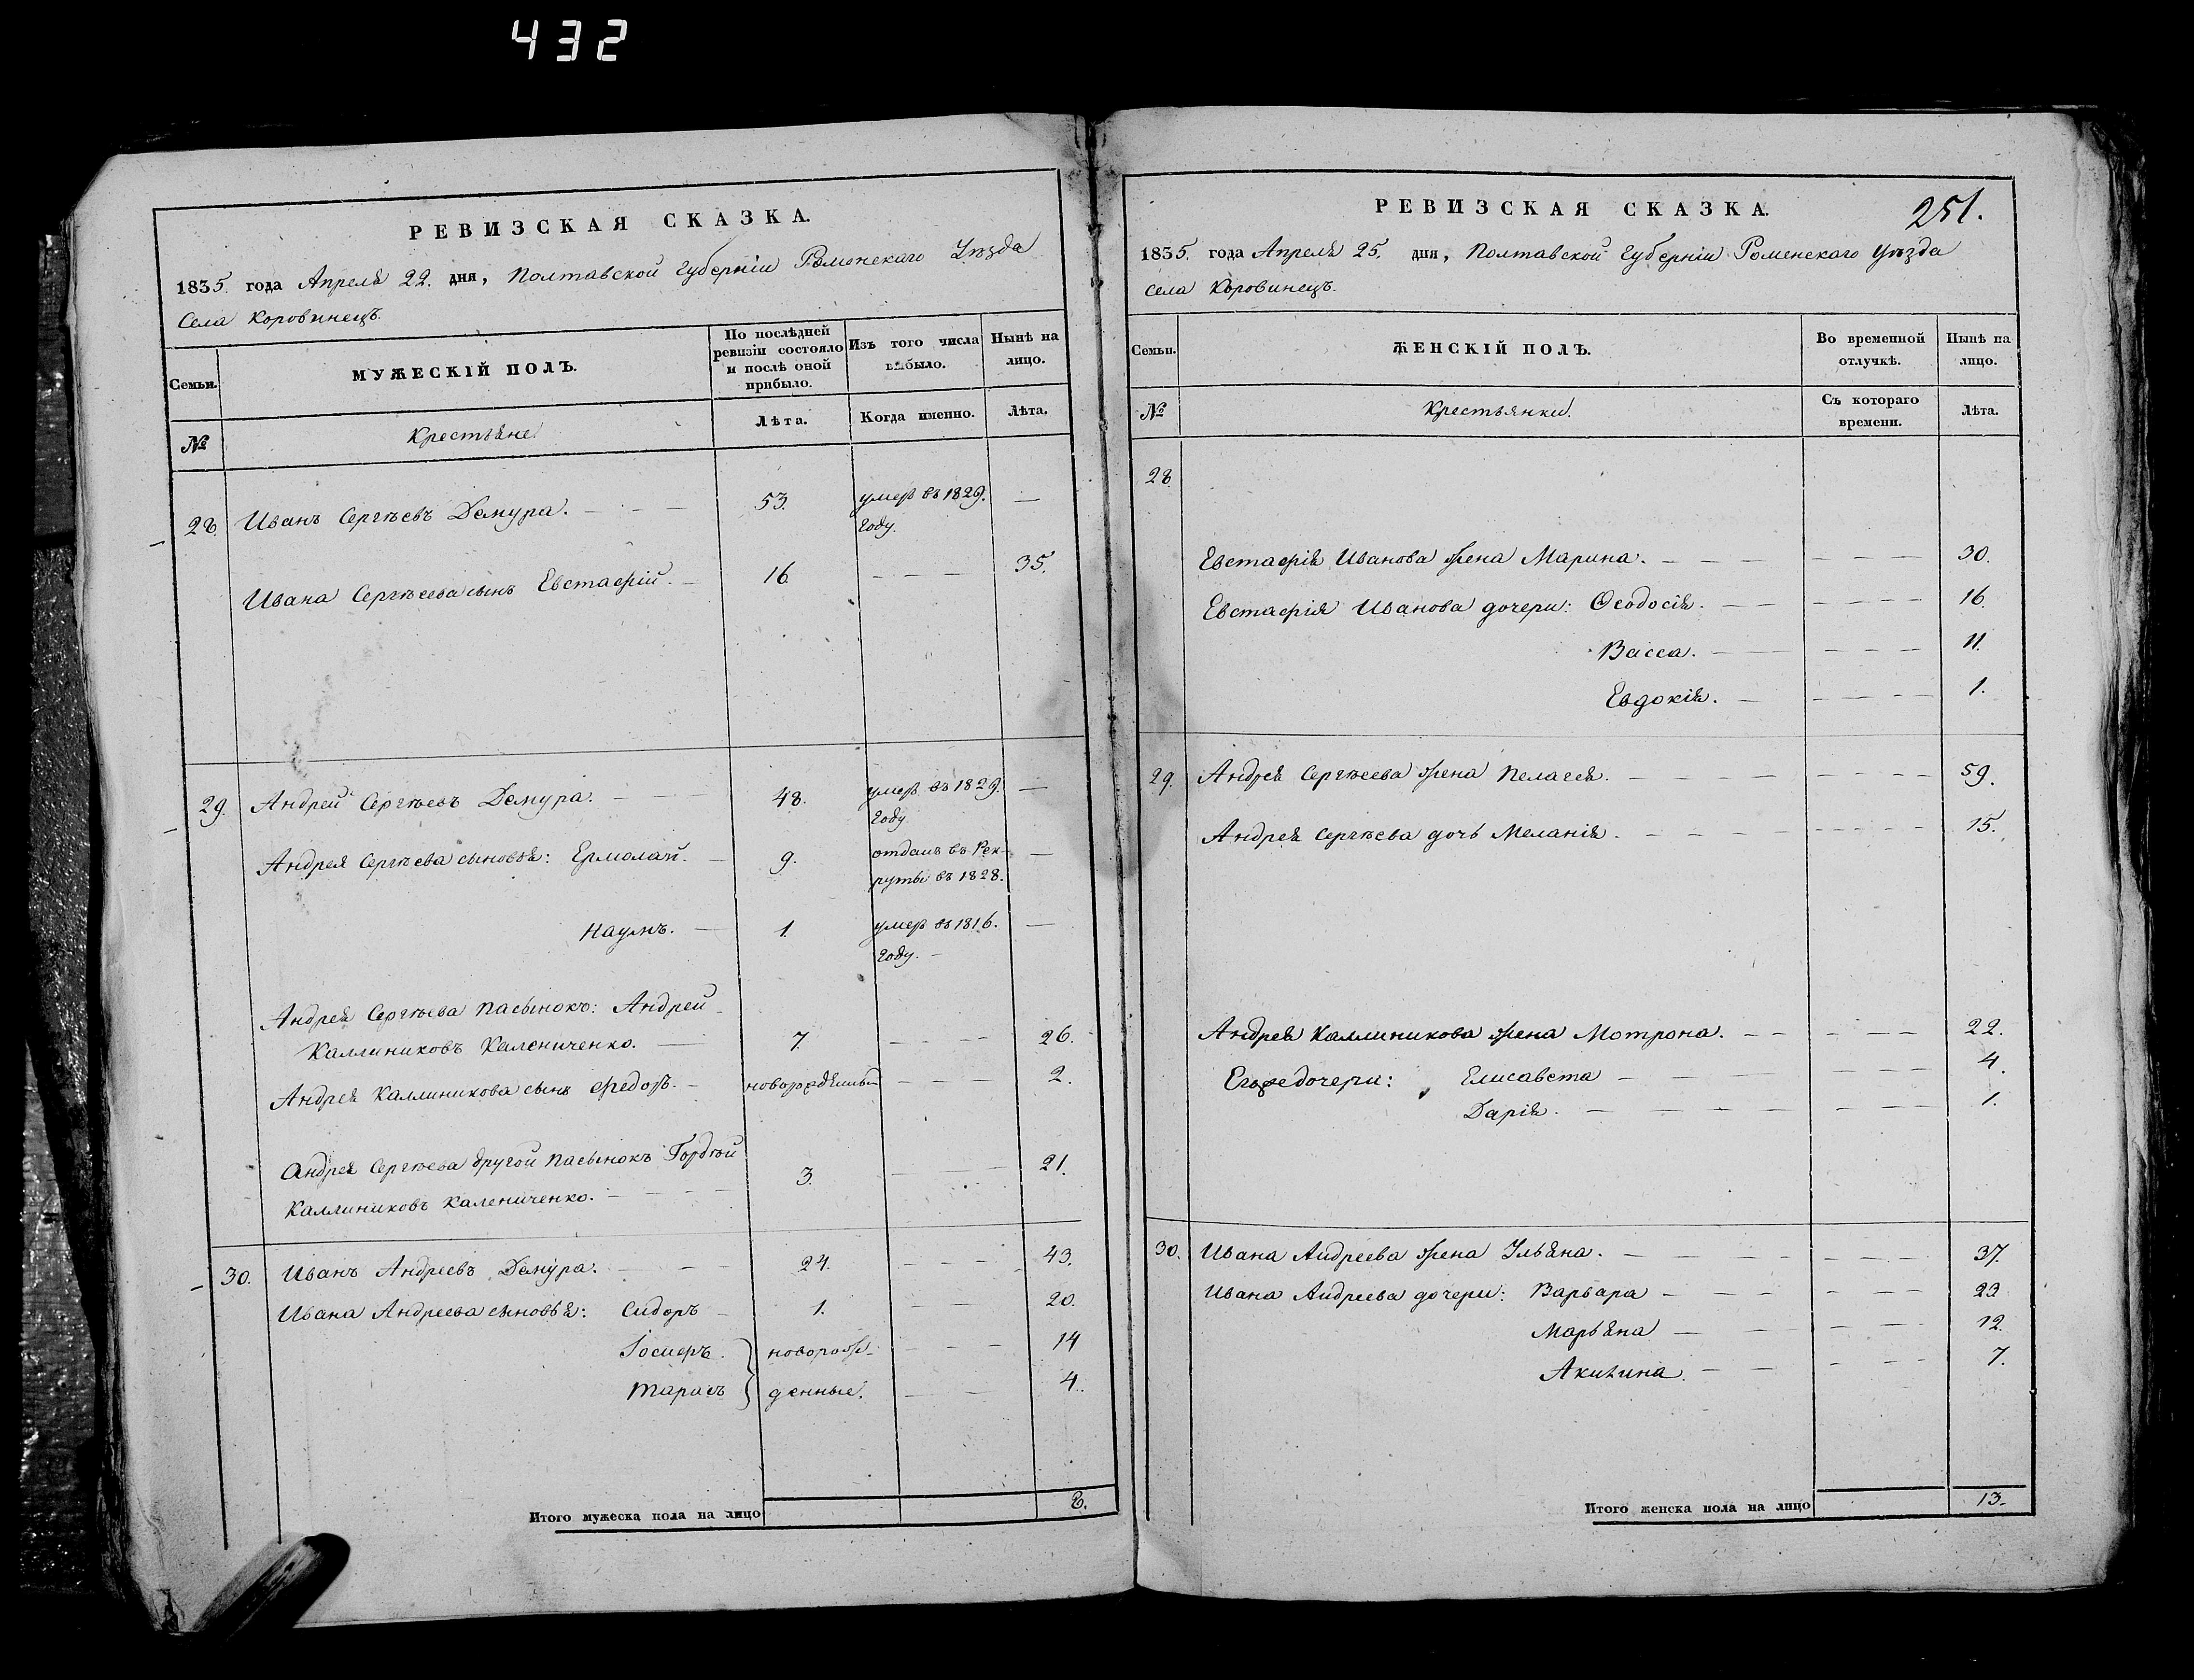 432
РЕВИЗСКАЯ СКАЗКА.
1835. года Апреля 22. дня, Полтавской Губерніи Роменскаго Уѣзда
Села Коровинецъ.
Семьи.
МУЖЕСКІЙ ПОЛЪ.
По послѣдней ревизіи состояло и послѣ оной прибыло.
Изъ того числа выбыло.
Нынѣ на лицо.
№
Крестьяне
Лѣта.
Когда именно.
Лѣта.
28. Иванъ Сергѣевъ Демура. 53. умеръ въ 1829. —
году.
Ивана Сергѣеева сынъ Евстафій. 16 — — — 35.
29. Андрей Сергѣевъ Демура. 48. умеръ въ 1829. —
году
Андрея Сергѣева сыновья: Ермолай. 9. отданъ въ Рек- —
руты въ 1828.
Наумъ. 1. умеръ въ 1816. —
году.
Андрея Сергѣева пасынокъ: Андрей
Каллиниковъ Калениченко. 7. — — — 26.
Андрея Каллиникова сынъ Федоръ. новорожденный — — — 2.
Андрея Сергѣева другой пасынокъ Гордѣй
Каллиниковъ Калениченко. 3. — — 21.
30. Иванъ Андреевъ Демура. 24. — — — 43.
Ивана Андреева сыновья: Сидоръ 1. — — 20.
Іосифъ. } новорож- — — — 14
Тарасъ } денные. — — 4.
Итого мужеска пола на лицо 8.
251.
РЕВИЗСКАЯ СКАЗКА.
1835. года Апреля 25. дня, Полтавской Губерніи Роменскаго Уѣзда
села Коровинецъ.
Семьи.
ЖЕНСКІЙ ПОЛЪ.
Во временной отлучкѣ.
Нынѣ на лицо.
№
Крестьянки.
Съ котораго времени.
Лѣта.
28
Евстафія Иванова жена Марина. — — — 30.
Евстафія Иванова дочери: Ѳеодосія. — — — — 16.
Васса. — — — 11.
Евдокія. — — — — 1.
29. Андрея Сергѣеева жена Пелагея. — — — — 59.
Андрея Сергѣева дочь Меланія. — — — — 15.
Андрея Каллиникова жена Мотрона. — — — 22.
Егоже дочери: Елисавета — — — 4.
Дарія. — — — 1.
30. Ивана Андреева жена Ульяна. — — — 37.
Ивана Андреева дочери: Варвара — — — 23
Марьяна — — — 12.
Акилина. — — — 7.
Итого женска пола на лицо 13.